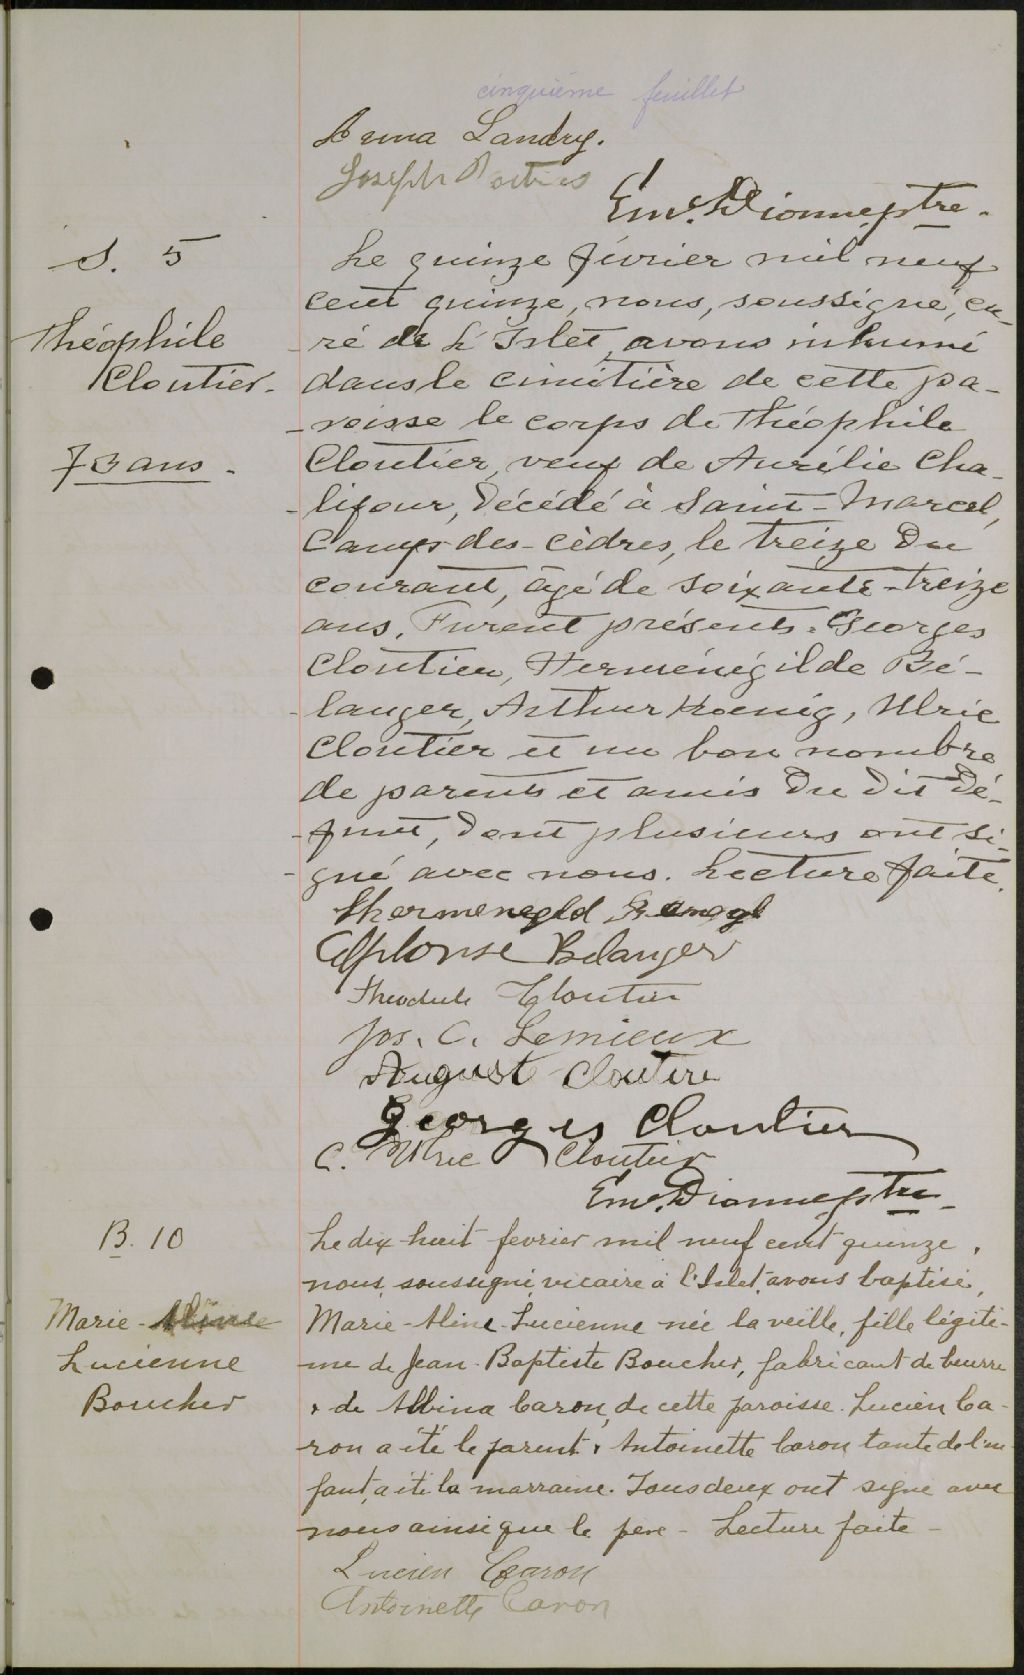 cinquième feuillet
Anna Landry.
Joseph
Em. Dionne, ptre.
S. 5
Théophile
Cloutier.
73 ans.
Le quinze février mil neuf
cent quinze, nous, soussigné, cu-
-ré de L'Islet, avons inhumé
dans le cimitière de cette pa-
-roisse le corps de Théophile
Cloutier, veuf de Aurélie Cha-
-lifour, décédé à Saint-Marcel,
Camps-des-cèdres, le treize du
courant, âgé de soixante-treize
ans. Furent présents: Georges
Cloutier, Herménégilde Bé-
-langer, Arthur Koenig, Ulric
Cloutier et un bon nombre
de parents et amis du dit dé-
-funt, dont plusieurs ont si-
-gné avec nous. Lecture faite.
Alphonse Belanger
Theodule Cloutier
Jos. C. Lemieux
August Cloutire
Georges Cloutier
C. Ulric Cloutier
Em. Dionne, ptre.
B. 10
Marie-Aline
Lucienne
Boucher
Le dix-huit fevrier mil neuf cent quinze,
nous, soussigné, vicaire à l'Islet, avons baptisé,
Marie-Aline-Lucienne née la veille, fille légiti-
-me de Jean-Baptiste Boucher, fabricant de beurre
& de Albina Caron, de cette paroisse. Lucien Ca-
-ron a été le parent & Antoinette Caron tante de l'en-
fant, a été la marraine. Tous deux ont signé avec
nous ainsi que le père - Lecture faite -
Lucien Caron
Antoinette Caron